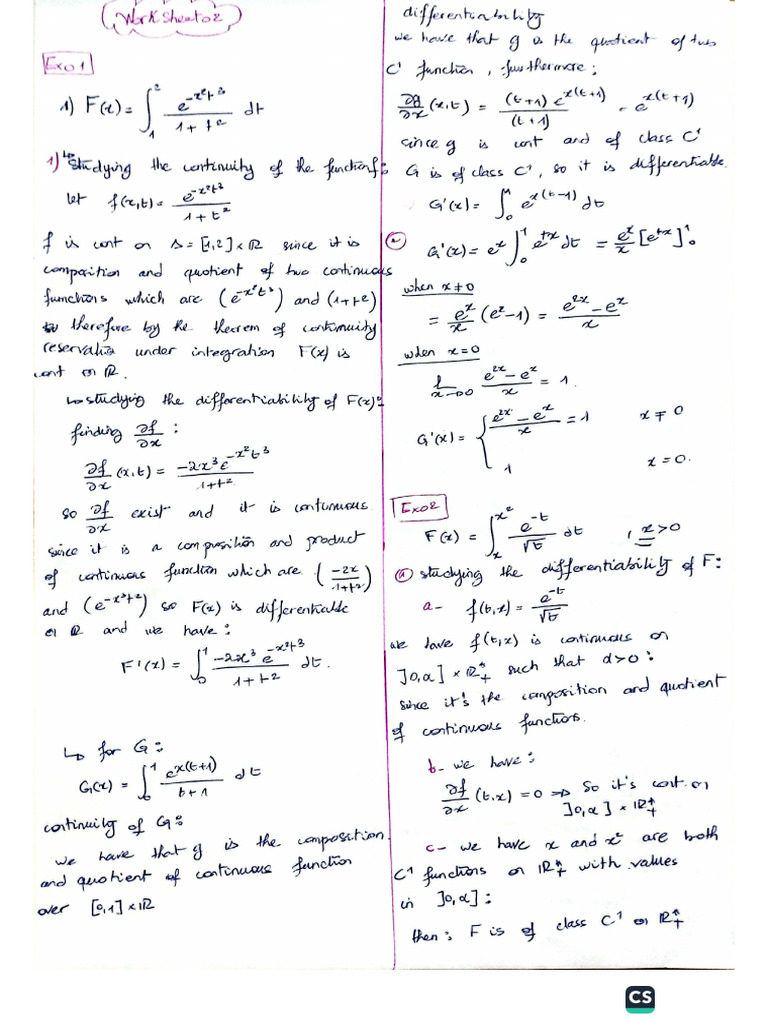 Worksheet 02
Ex01
1) F(x) = ∫₁² e^{-x²t³} / (1+t²) dt
1) ↳ Studying the continuity of the function f:
let f(x,t) = e^{-x²t³} / (1+t²)
f is cont on Δ = [1,2] × ℝ since it is
composition and quotient of two continuous
functions which are (e^{-x²t³}) and (1+t²)
therefore by the theorem of continuity
under integration F(x) is
cont on ℝ.
↳ studying the differentiability of F(x):
finding ∂f/∂x :
∂f/∂x (x,t) = -2x³e^{-x²t³} / (1+t²)
so ∂f/∂x exist and it is continuous
since it is a composition and product
of continuous function which are (-2x / (1+t²))
and (e^{-x³t²}) so F(x) is differentiable
on ℝ and we have:
F'(x) = ∫₀¹ -2x³ e^{-x²t³} / (1+t²) dt.
↳ for G:
G(x) = ∫₀¹ e^{x(t+1)} / (t+1) dt
continuity of G:
we have that g is the composition
and quotient of continuous function
over [0,1] × ℝ
differentiability
we have that g is the quotient of two
C¹ function, furthermore:
∂g/∂x (x,t) = (t+1) e^{x(t+1)} / (t+1) = e^{x(t+1)}
since g is cont and of class C¹
G is of class C¹, so it is differentiable.
G'(x) = ∫₀¹ e^{x(t-1)} dt
② G'(x) = e^x ∫₀¹ e^{tx} dt = e^x/x [e^{tx}]¹₀
when x ≠ 0
= e^x/x (e^x - 1) = (e^{2x} - e^x) / x
when x = 0
lim x→0 (e^{2x} - e^x) / x = 1.
G'(x) = { (e^{2x} - e^x) / x = 1 x ≠ 0
1 x = 0.
Ex02
F(x) = ∫ₓ^{x²} e^{-t} / √t dt , x > 0
① studying the differentiability of F:
a- f(t,x) = e^{-t} / √t
we have f(t,x) is continuous on
]0,α] × ℝ*₊ such that α>0 :
since it's the composition and quotient
of continuous functions.
b- we have:
∂f/∂x (t,x) = 0 ⇒ so it's cont on
]0,α] × ℝ*₊
c- we have x and x² are both
C¹ functions on ℝ*₊ with values
in ]0,α] :
then: F is of class C¹ on ℝ*₊
CS